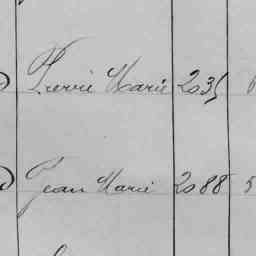 Pierre Marie 2035
Jean Marie 2088 5